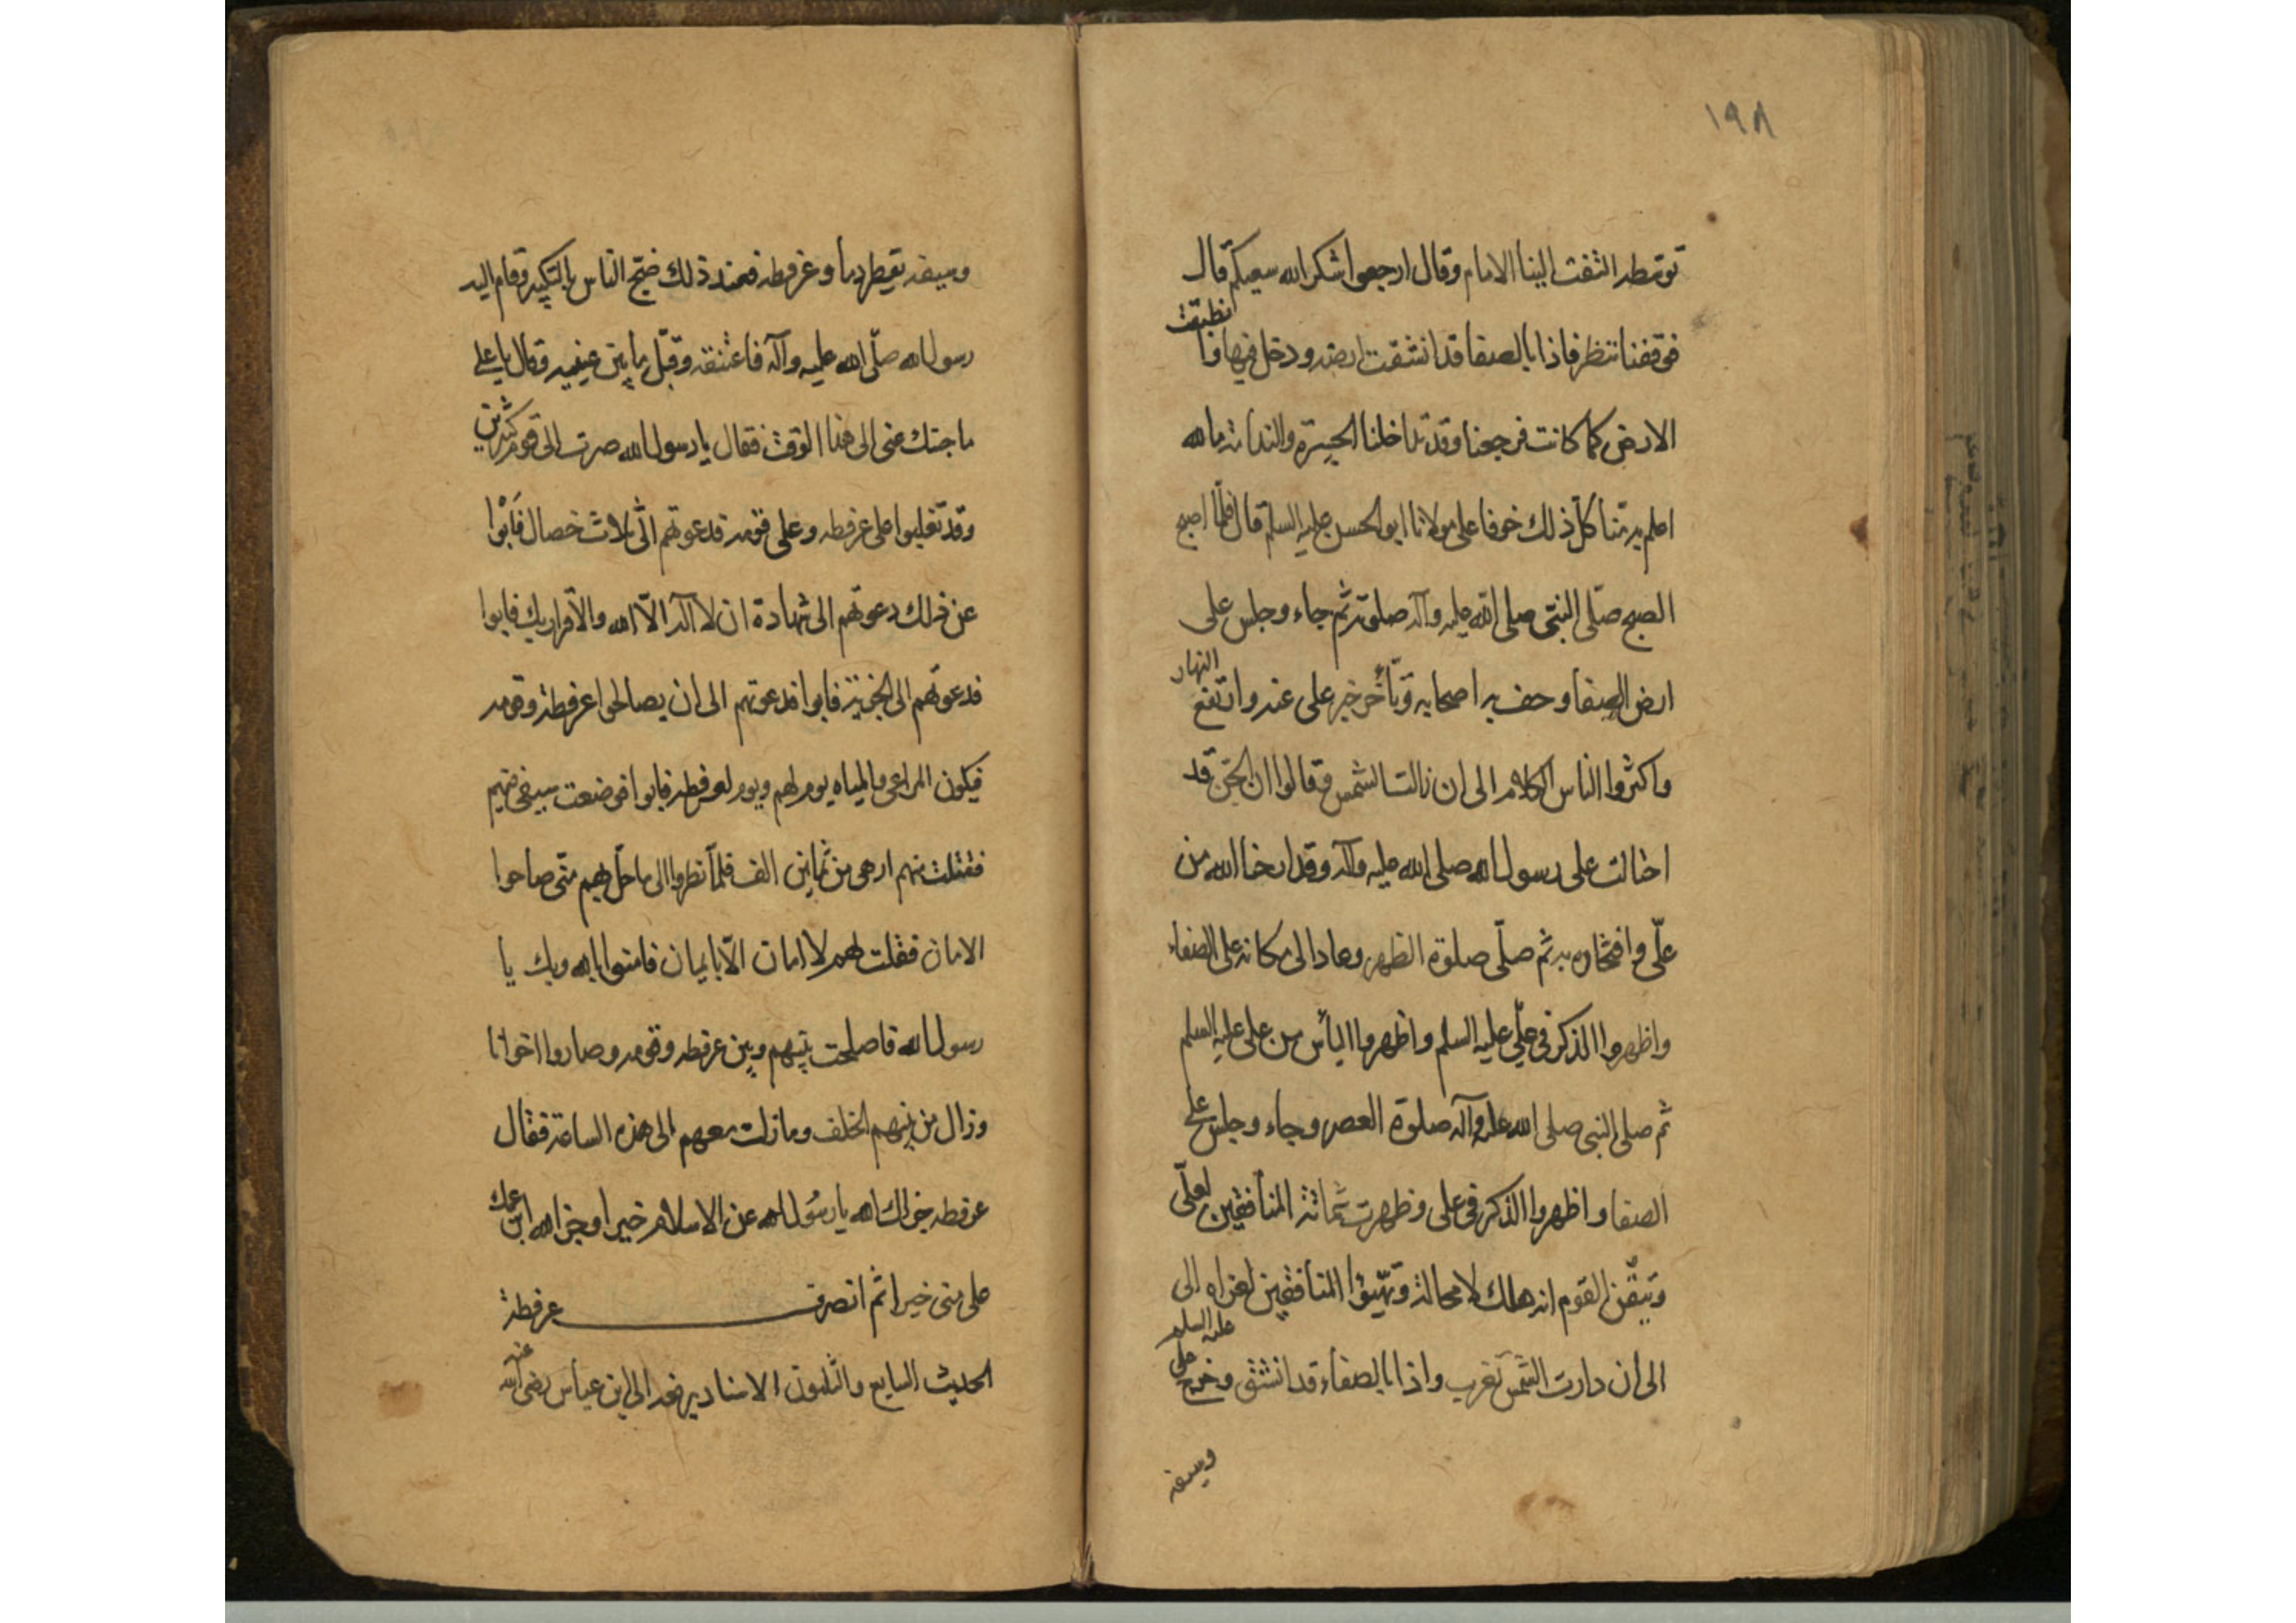 ١٩٨
توسطه التفت الينا الامام وقال ارجعوا شكر الله سعيكم قال
فوقفنا ننظر فاذا بالصفا قد انشقت ارضه ودخل فيها وانطبقت
الارض كما كانت فرجعنا وقد تداخلنا الحيرة والندامة ما الله
اعلم به منا كل ذلك خوفا على مولانا ابو الحسن عليه السلم قال فلما اصبح
الصبح صلى النبي صلى الله عليه وآله صلوته ثم جاء وجلس على
ارض الصفا وحف به اصحابه وتأخر خبر على عنه وارتفع النهار
واكثروا الناس الكلام الى ان زالت الشمس وقالوا ان الجن قد
احتالت على رسول الله صلى الله عليه وآله وقد اراحنا الله من
علي وافتخاره به ثم صلى صلوة الظهر وعاد الى مكانه على الصفاء
واظهروا الذكر في علي عليه السلم واظهروا اليأس من على عليه السلم
ثم صلى النبي صلى الله عليه وآله صلوة العصر وجاء وجلس على
الصفا واظهروا الذكر في على وظهرت شماتة المنافقين لعلي
وتيقن القوم انه هلك لا محالة وتهيؤا المنافقين الى
الى ان دارت الشمس تغرب واذا بالصفاء قد انشق وخرج علي عليه السلم
وسيفه
وسيفه يقطر دما وعرفطه فعند ذلك ضج الناس بالتكبير وقام اليه
رسول الله صلى الله عليه وآله فاعتنقه وقبل ما بين عينيه وقال يا علي
ما حبسك عنى الى هذا الوقت فقال يا رسول الله صرت الى قوم كثيرين
وقد تغلبوا على عرفطه وعلى قومه فدعوتهم الى ثلاث خصال فابوا
عن ذلك دعوتهم الى شهادة ان لا آله الا الله والاقرار بك فابوا
فدعوتهم الى الجزية فابوا فدعوتهم الى ان يصالحوا عرفطة وقومه
فيكون المراعى والمياه يوم لهم ويوم لعرفطه فابوا فوضعت سيفى فيهم
فقتلت منهم ازهى من ثمانين الف فلما نظروا الى ما حل بهم منى صاحوا
الامان فقلت لهم لا امان الا بايمان فامنوا بالله وبك يا
رسول الله فاصلحت بينهم وبين عرفطه وقومه وصاروا اخوانا
وزال من بينهم الخلف وما زلت معهم الى هذه الساعة فقال
عرفطه جزاك الله يا رسول الله عن الاسلام خيرا وجزا الله ابن عمك
على منى خيرا ثم انصرف عرفطة
الحديث السابع والثلثون الاسناد يرفعه الى ابن عباس رضى الله عنه